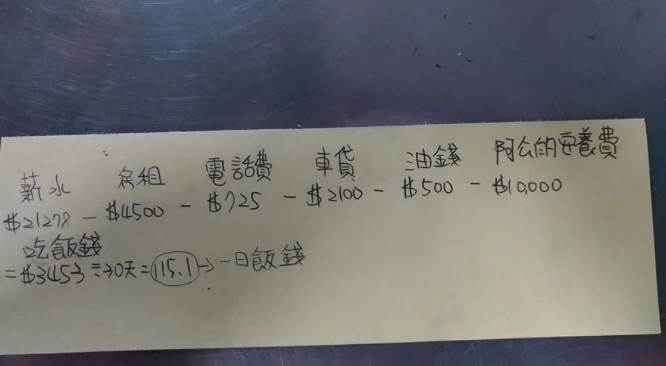 薪水 房租 電話費 車貸 油錢 阿公的安養費
$21278 - $4500 - $725 - $2100 - $500 - $10,000
吃飯錢
= $3453 ÷30天 = 115.1 → 一日飯錢